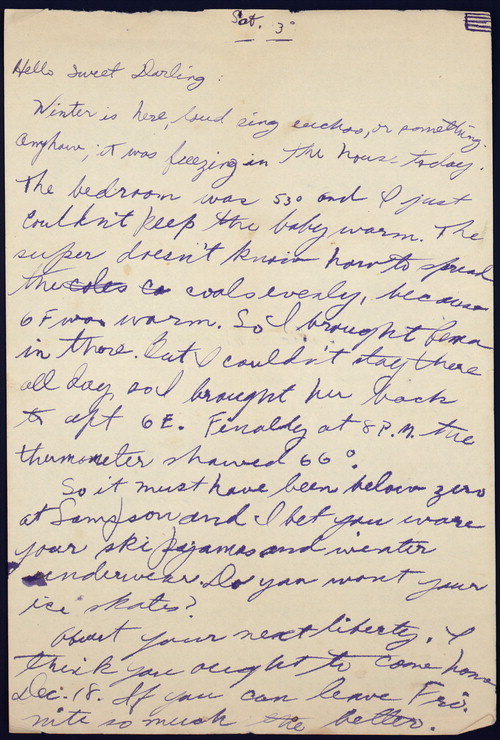 Sat. 3°
Hello Sweet Darling:
Winter is here, loud sing cuckoo, or something.
Anyhow, it was freezing in the house today.
The bedroom was 53° and I just
couldn't keep the baby warm. The
super doesn't know how to spread
the coles co coals evenly, because
6F was warm. So I brought
in there. But I couldn't stay there
all day, so I brought her back
to apt 6E. Finally at 8 P.M. the
thermometer showed 66°.
So it must have been below zero
at Sampson and I bet you wore
your ski pajamas and winter
underwear. Do you want your
ice skates?
About your next liberty. I
think you ought to come home
Dec. 18. If you can leave Fri.
nite so much the better.